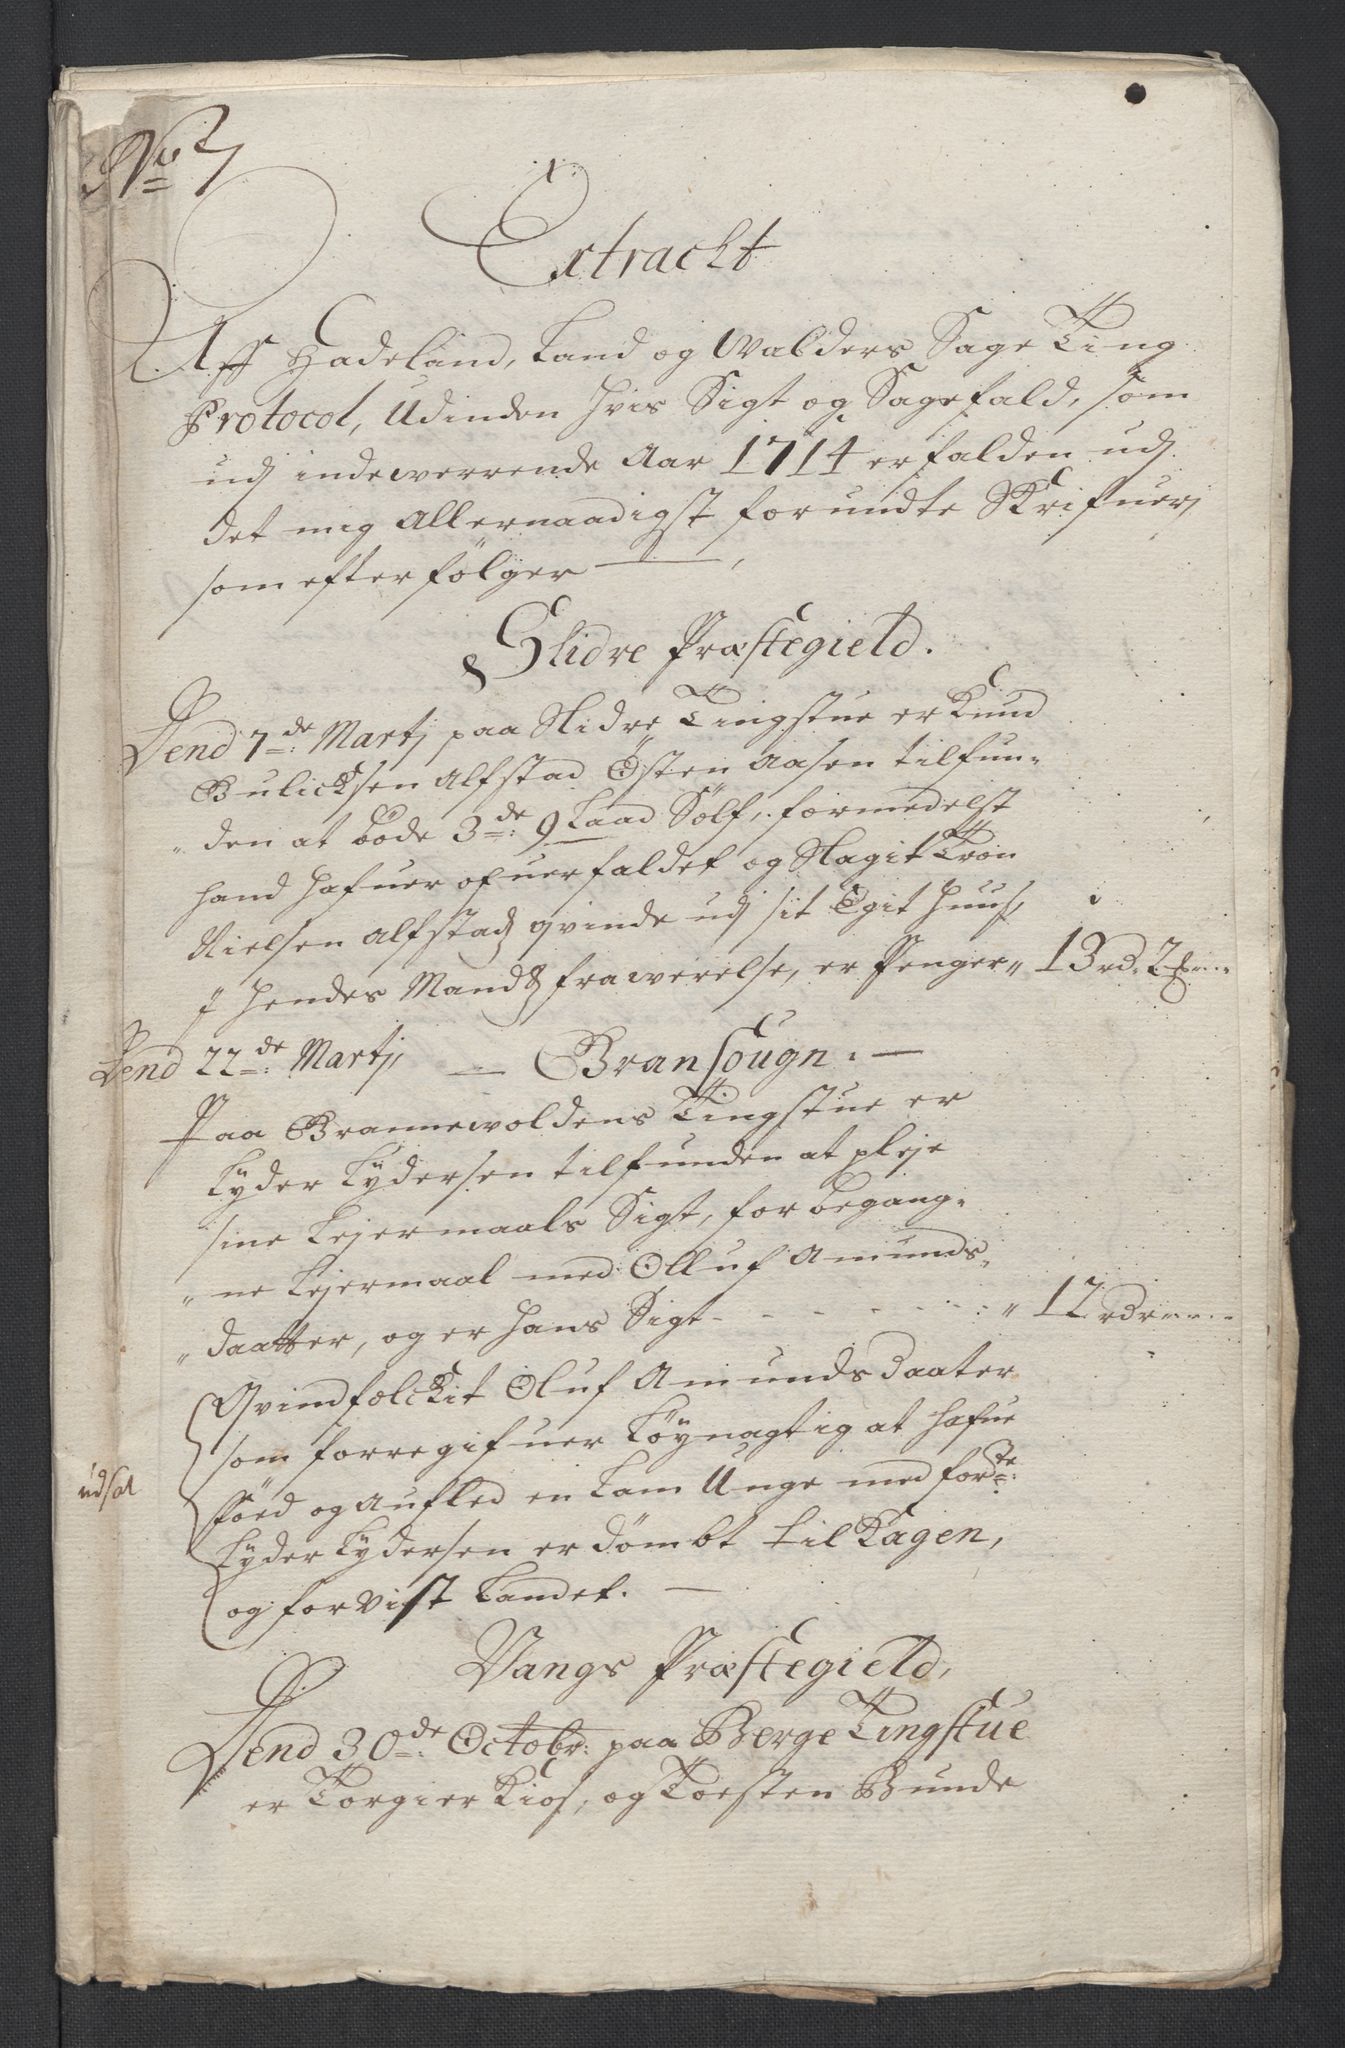 No 7
Extracht
Aff Hadeland, Land og Walders Sage Ting
Protocol, Udinden hvis Sigt og Sagefald, som
udj indewerrende Aar 1714 er falden udj
det mig Allernaadigst forundte Skrifuerj
som efterfölger
Slidre Præstegield.
Dend 7de: Martj paa Slidre Tingstue er Knud
Bulicksen Alfstad Östen Aasen tilfun-
den at böde 3de: 9 Laad Sölf, formedelst
hand hafuer ofuerfaldet og Slagit Tron
Nielsen Alfstads qvinde udj sit Egit Huus,
j hendes Mands frawerelse, er Penger 13 rd. 2
Dend 22de: Martj, Bransougn.
Paa Brannewoldens Tingstue er
Lyder Lydersen tilfunden at pleje
sine Lejermaals Sigt, for begang-
ne Lejermaal med Olluf Amunds-
daatter, og er hans Sigt - - - - - 12 rdr
Qvindfolckit Oluf Amundsdaater
som forregifuer Löynagtig at hafue
föed og Aufled en Lam Unge med forste:
udsat
Lyder Lydersen er dömbt til Kagen,
og forvist Landet.
Vangs Præstegield,
Dend 30de: Octobr: paa Berge Tingstue
er Torgier Kios, og Torsten Bunde